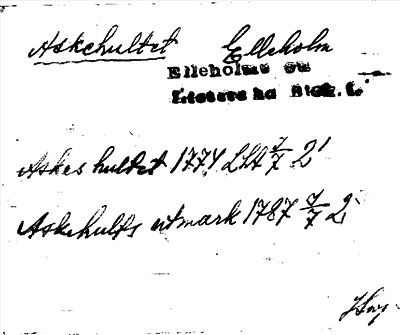 Askehultet Elleholm
Elleholms sn
Listers hd Blek. l.
Askeshultet 1774 LSA 7/7 2'
Askehults utmark 1787 7/7 2